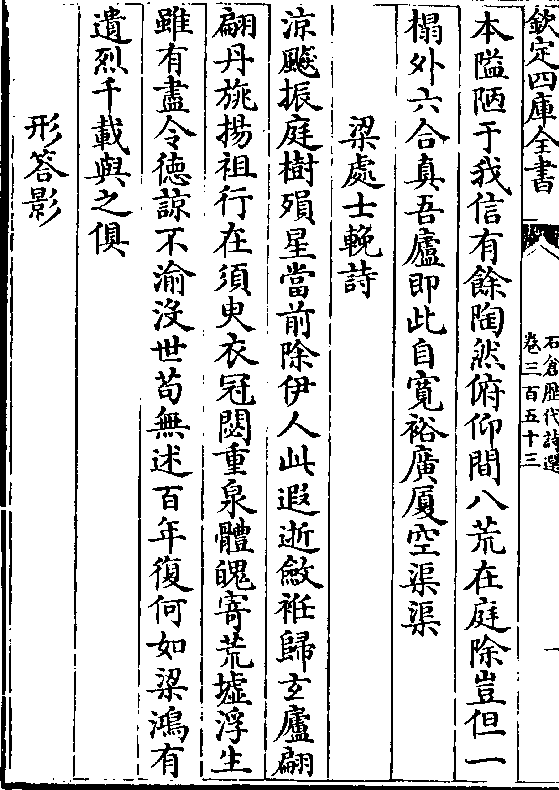 欽定四庫全書
石倉歴代詩選
卷三百五十三
一
本隘陋于我信有餘陶然俯仰間八荒在庭除豈但一
榻外六合真吾廬即此自寛裕廣厦空渠渠
梁處士輓詩
凉飈振庭樹殞星當前除伊人此遐逝斂袵歸玄廬翩
翩丹旐揚祖行在須臾衣冠閟重泉體魄寄荒墟浮生
雖有盡令徳諒不渝沒世苟無述百年復何如梁鴻有
遺烈千載與之俱
形答影